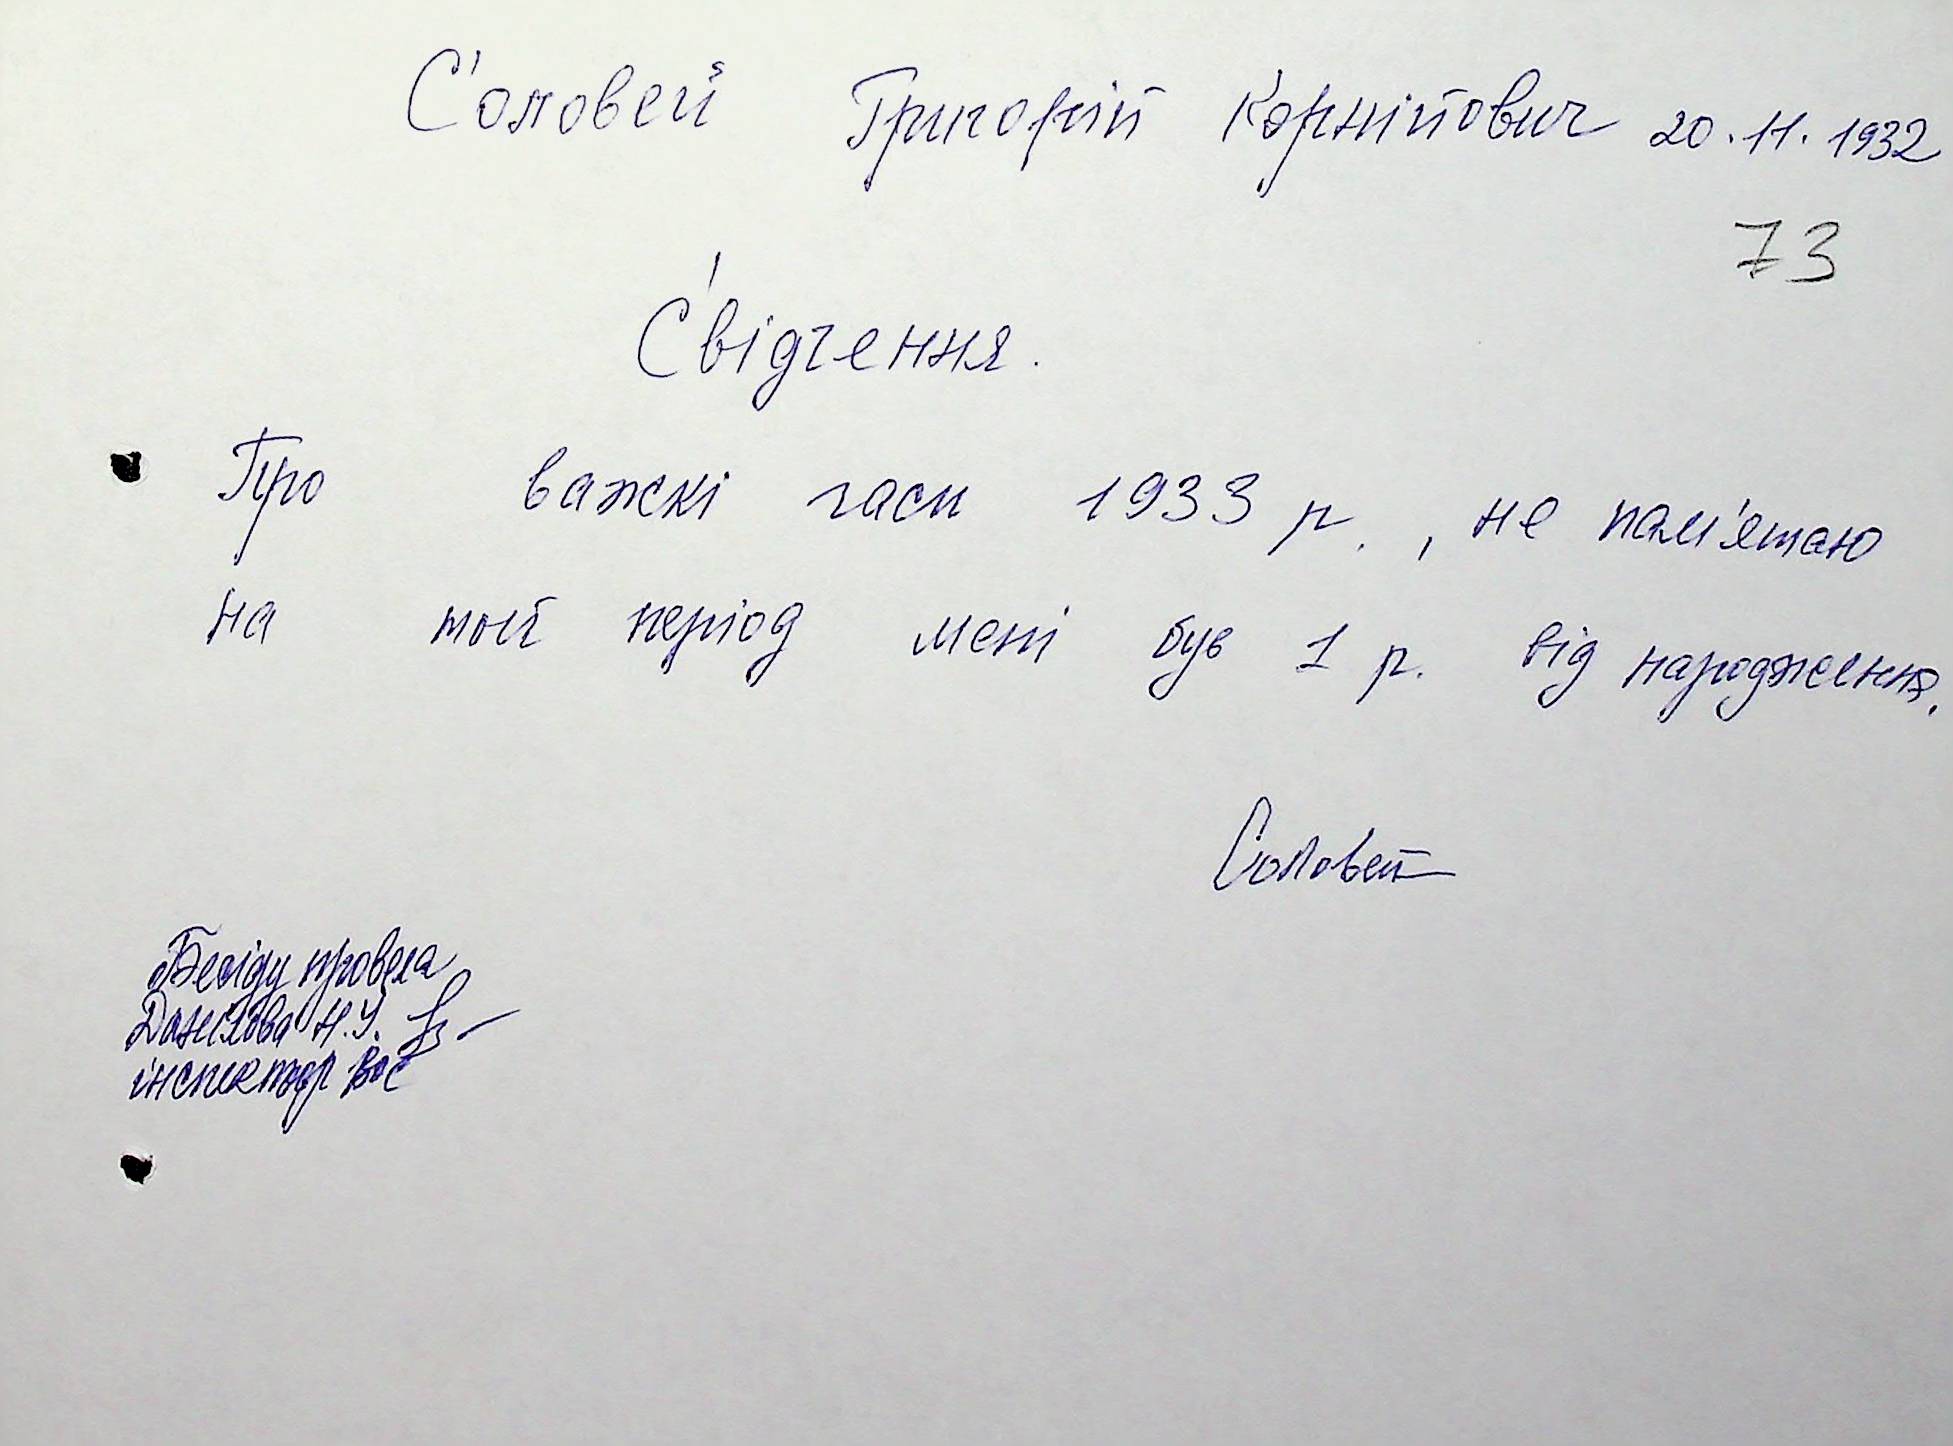 Соловей Григорій Корнійович 20.11.1932
73
Свідчення.
Про важкі часи 1933 р., не пам'ятаю
на той період мені був 1 р. від народження.
Соловей
Бесіду провела
Данілова Н.У.
інспектор ВОС